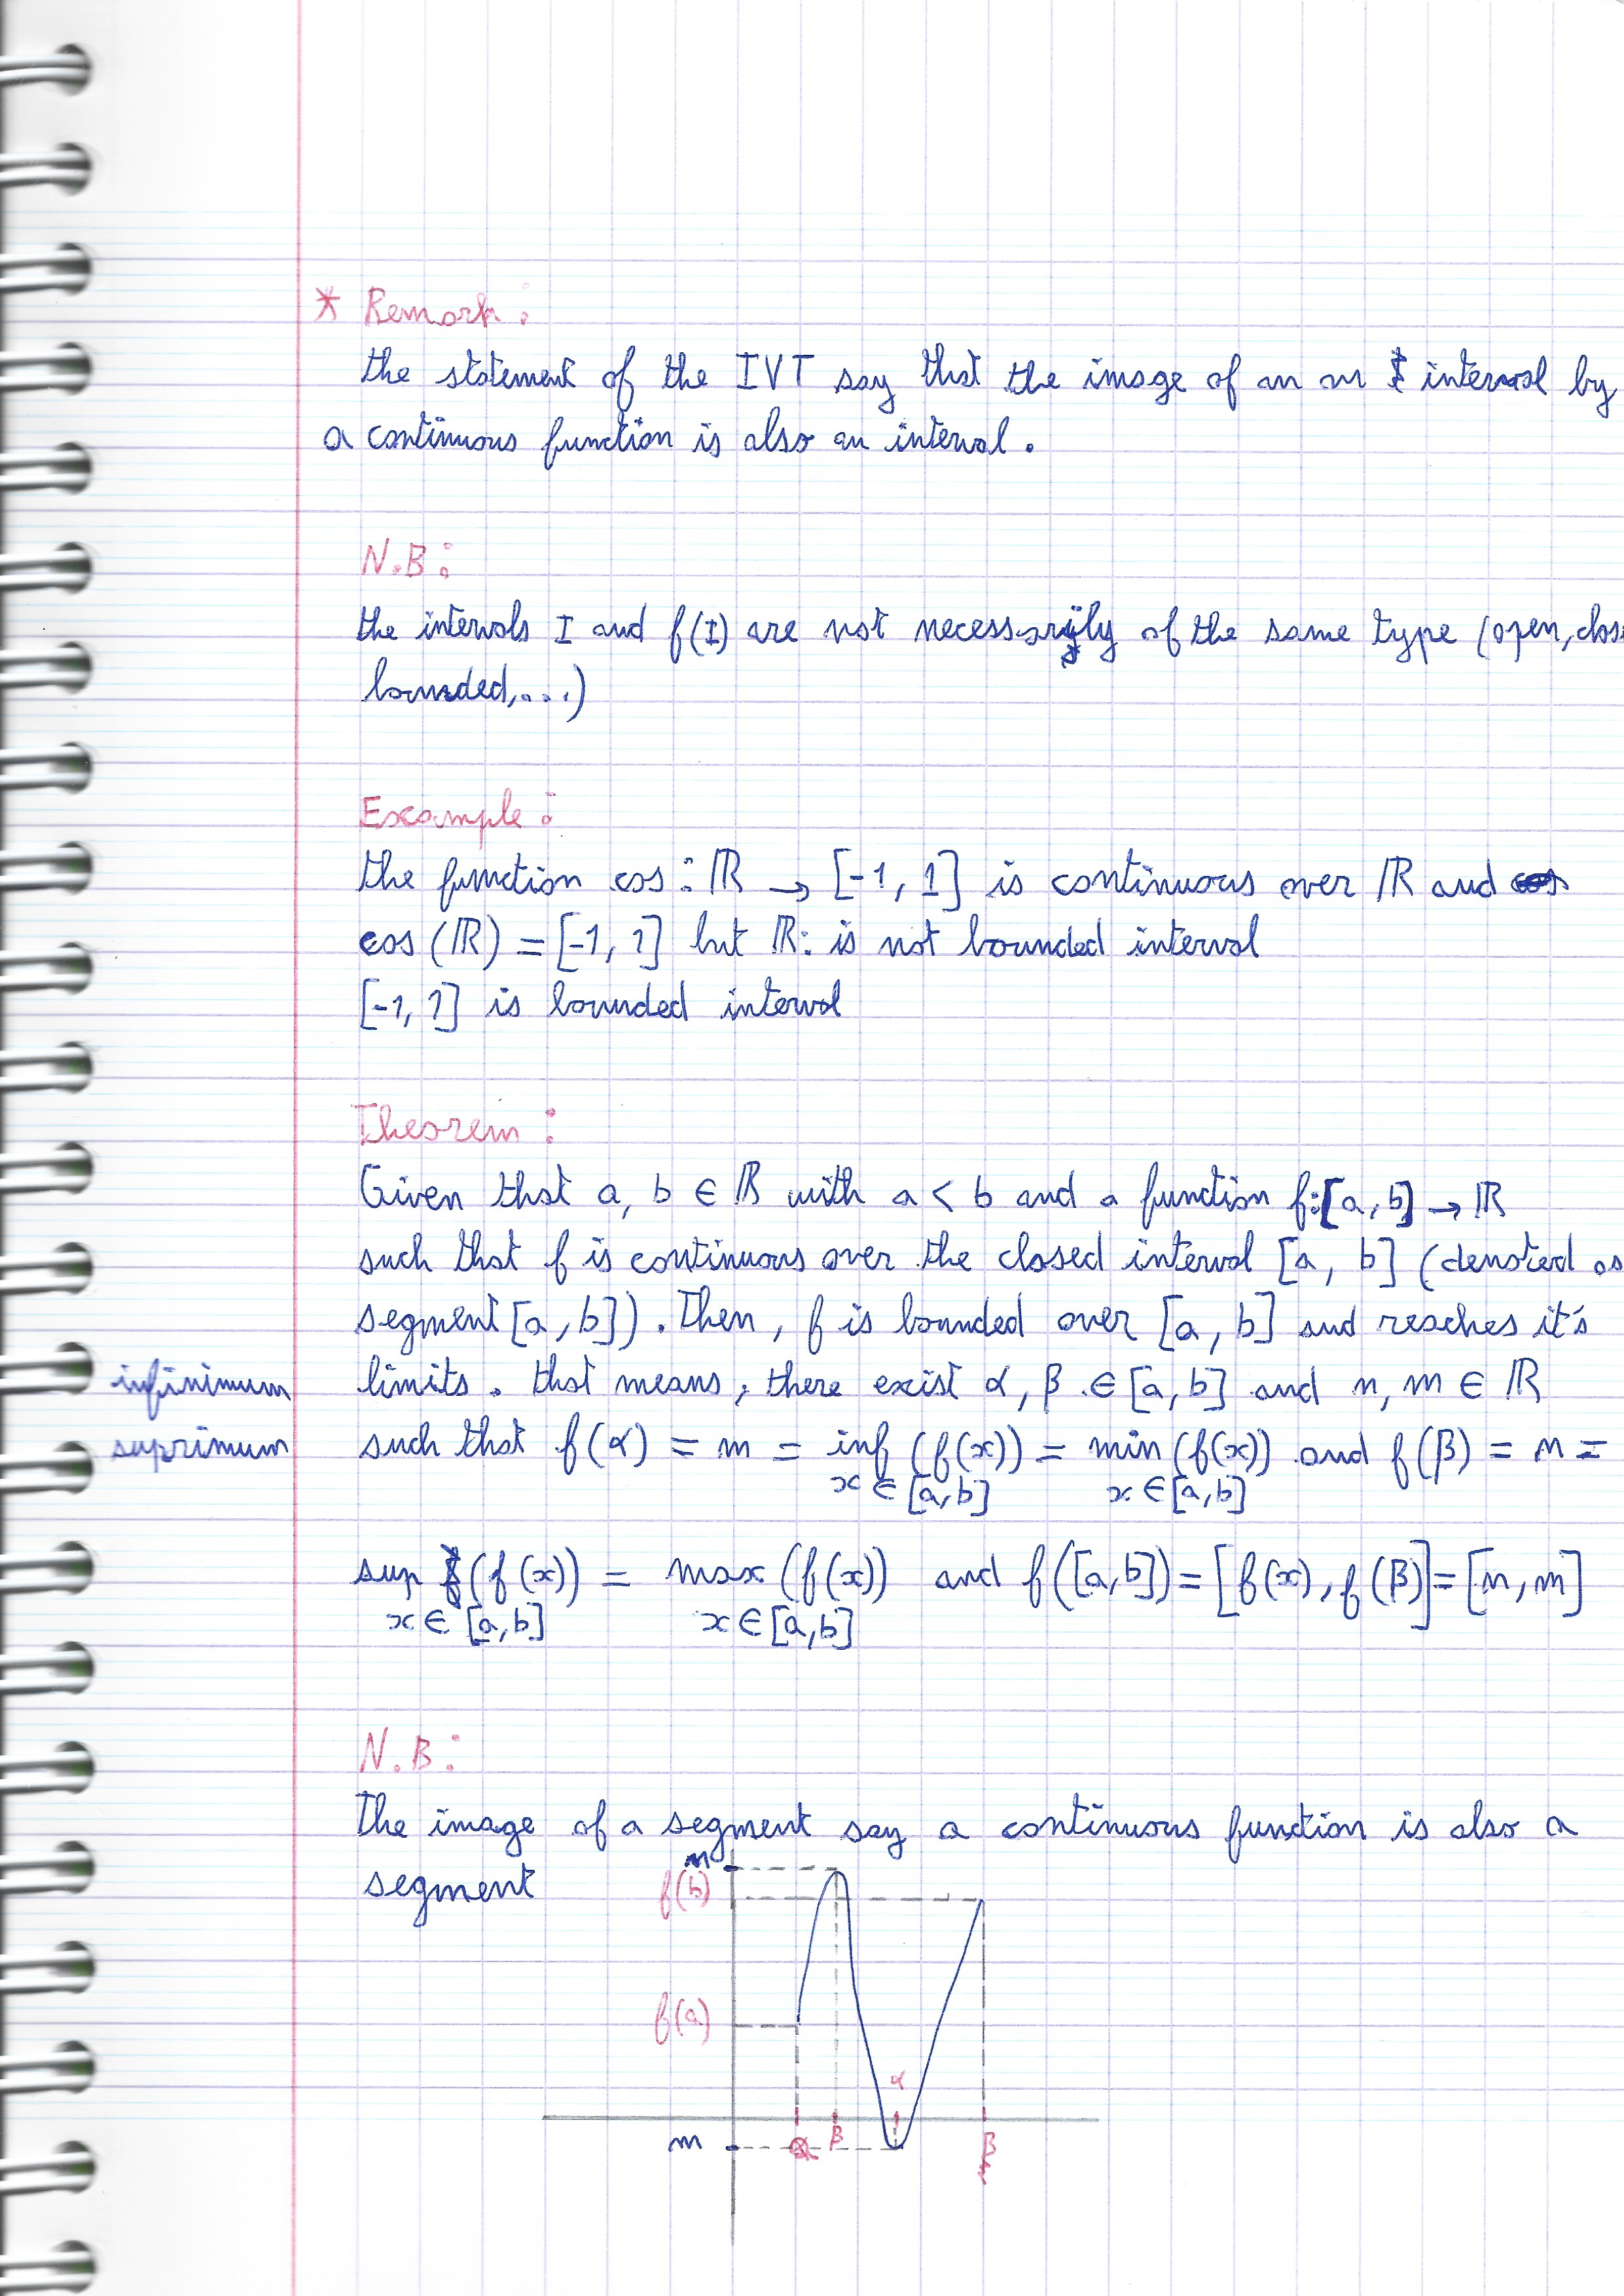 * Remark:
the statement of the IVT say that the image of an interval by
a continuous function is also an interval.
N.B:
the intervals I and f(I) are not necessarily of the same type (open, clos
bounded,...)
Example:
the function cos: ℝ → [-1, 1] is continuous over ℝ and
cos(ℝ) = [-1, 1] but ℝ: is not bounded interval
[-1, 1] is bounded interval
Theorem:
Given that a, b ∈ ℝ with a < b and a function f:[a, b] → ℝ
such that f is continuous over the closed interval [a, b] (denoted as
segment [a, b]). Then, f is bounded over [a, b] and reaches it's
infinimum limits. that means, there exist α, β ∈ [a, b] and n, m ∈ ℝ
suprimum such that f(α) = m = inf (f(x)) = min (f(x)) and f(β) = n =
x ∈ [a, b] x ∈ [a, b]
sup (f(x)) = max (f(x)) and f([a, b]) = [f(x), f(β)] = [n, m]
x ∈ [a, b] x ∈ [a, b]
N.B:
The image of a segment say a continuous function is also a
segment
n
f(b)
f(a)
α
β
β
m